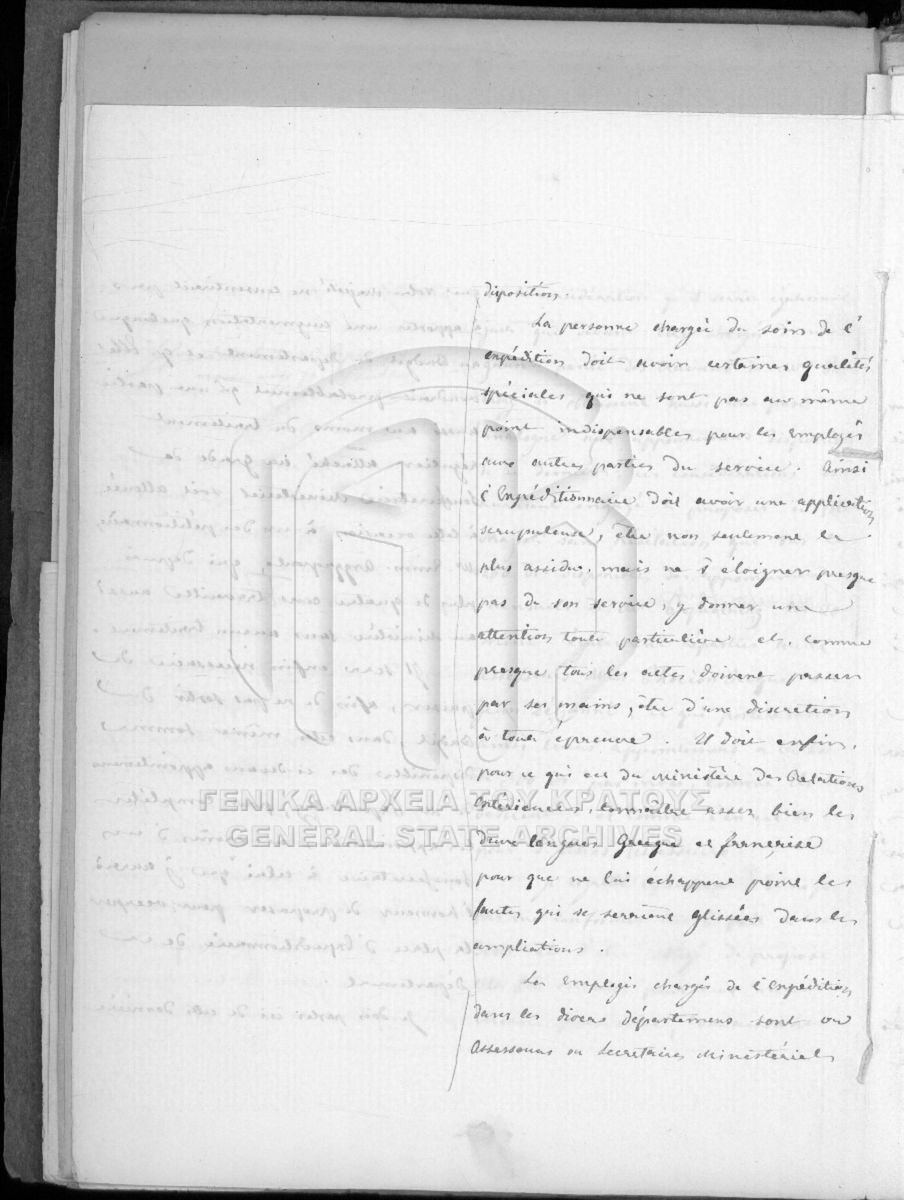 disposition.
La personne chargée du soin de l'
expédition doit avoir certaines qualités
spéciales qui ne sont pas au même
point indispensables pour les Employés
aux autres parties du service. Ainsi
l'Expéditionnaire doit avoir une application
scrupuleuse, être non seulement le
plus assidu, mais ne s'éloigner presque
pas de son service, y donner une
attention toute particulière et, comme
presque tous les actes doivent passer
par ses mains, être d'une discretion
à toute épreuve. Il doit enfin,
pour ce qui est du Ministère des Relations
Extérieures, connaître assez bien les
deux langues Grecque et française
pour que ne lui échappent point les
fautes qui se seraient glissées dans les
ampliations.
Les Employés chargés de l'Expédition
dans les divers départemens sont ou
Assesseurs ou Secretaires Ministériels
ΓΕΝΙΚΑ ΑΡΧΕΙΑ ΤΟΥ ΚΡΑΤΟΥΣ
GENERAL STATE ARCHIVES